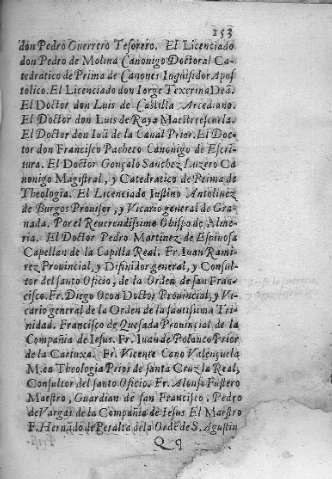 253
don Pedro Guerrero Tesorero. El Licenciado
don Pedro de Molina Canonigo Doctoral Ca-
tedratico de Prima de Canones Inquisidor Apos
tolico. El Licenciado don Iorge Texerina Deã.
El Doctor don Luis de Castilla Arcediano.
El Doctor don Luis de Raya Maestrescuela.
El Doctor don Iuã de la Canal Prior. El Doc-
tor don Francisco Pacheco Canonigo de Escri-
tura. El Doctor Gonçalo Sanchez Luzero Ca
nonigo Magistral, y Catedratico de Prima de
Theologia. El Licenciado Iustino Antolinez
de Burgos Prouisor, y Vicario general de Gra-
nada. Por el Reuerendissimo Obispo de Alme-
ria. El Doctor Pedro Martinez de Espinosa
Capellan de la Capilla Real. Fr. Iuan Rami-
rez Prouincial, y Difinidor general, y Consul-
tor del santo Oficio, de la Orden de san Fran-
cisco. Fr. Diego Doctor Prouincial, y Vi-
cario general de la Orden de la santissima Tri-
nidad. Francisco de Quesada Prouincial de la
Compañia de Iesus. Fr. Iuan de Polanco Prior
de la Cartuxa. Fr. Vicente Cano Valençuela
M. en Theologia Prior de santa Cruz la Real,
Consultor del santo Oficio. Fr. Alonso
Maestro, Guardian de san Francisco. Pedro
de Vargas de la Compañia de Iesus El Maestro
F. Hernãdo de Peralta de la Ordẽ de S. Agustin
Q q